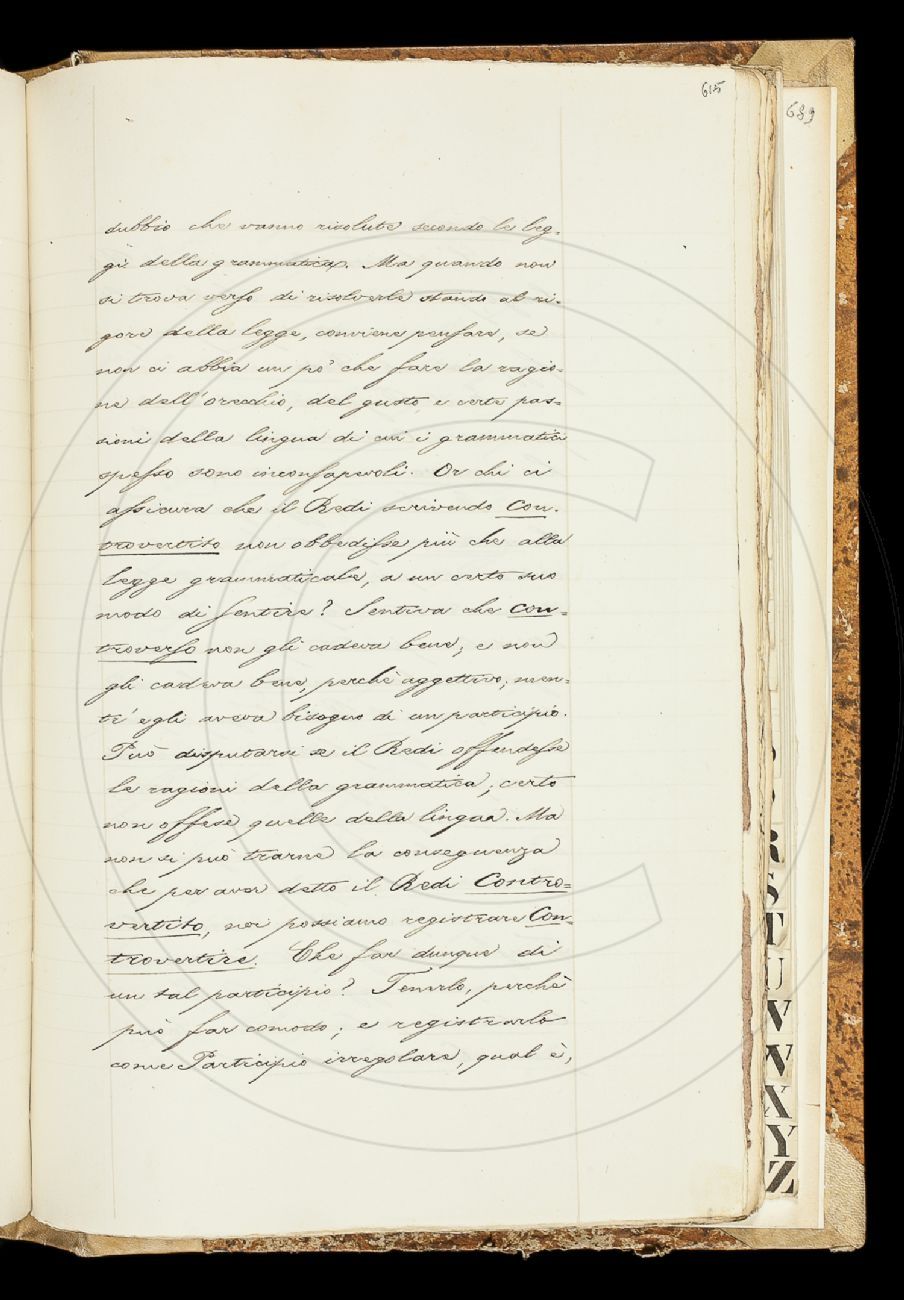 615
689
dubbio che vanno risolute secondo le leg-
gi della grammatica. Ma quando non
si trova verso di risolverle stando al ri-
gore della legge, conviene pensare, se
non ci abbia un pò che fare la ragio-
ne dell'orecchio, del gusto, e certe pas-
sioni della lingua di cui i grammatici
spesso sono inconsapevoli. Or chi ci
assicura che il Redi scrivendo Con-
trovertito non obbedisse più che alla
legge grammaticale, a un certo suo
modo di sentire? Sentiva che con-
troverso non gli cadeva bene; e non
gli cadeva bene, perchè aggettivo; men-
tr'egli aveva bisogno di un participio.
Può disputarsi se il Redi offendesse
le ragioni della grammatica, certo
non offese quelle della lingua. Ma
non si può trarne la conseguenza
che per aver detto il Redi Contro-
vertito, noi possiamo registrare Con-
trovertire. Che far dunque di
un tal participio? Tenerlo, perchè
può far comodo; e registrarlo
come Participio irregolare, qual è,
R
S
T
U
V
W
X
Y
Z